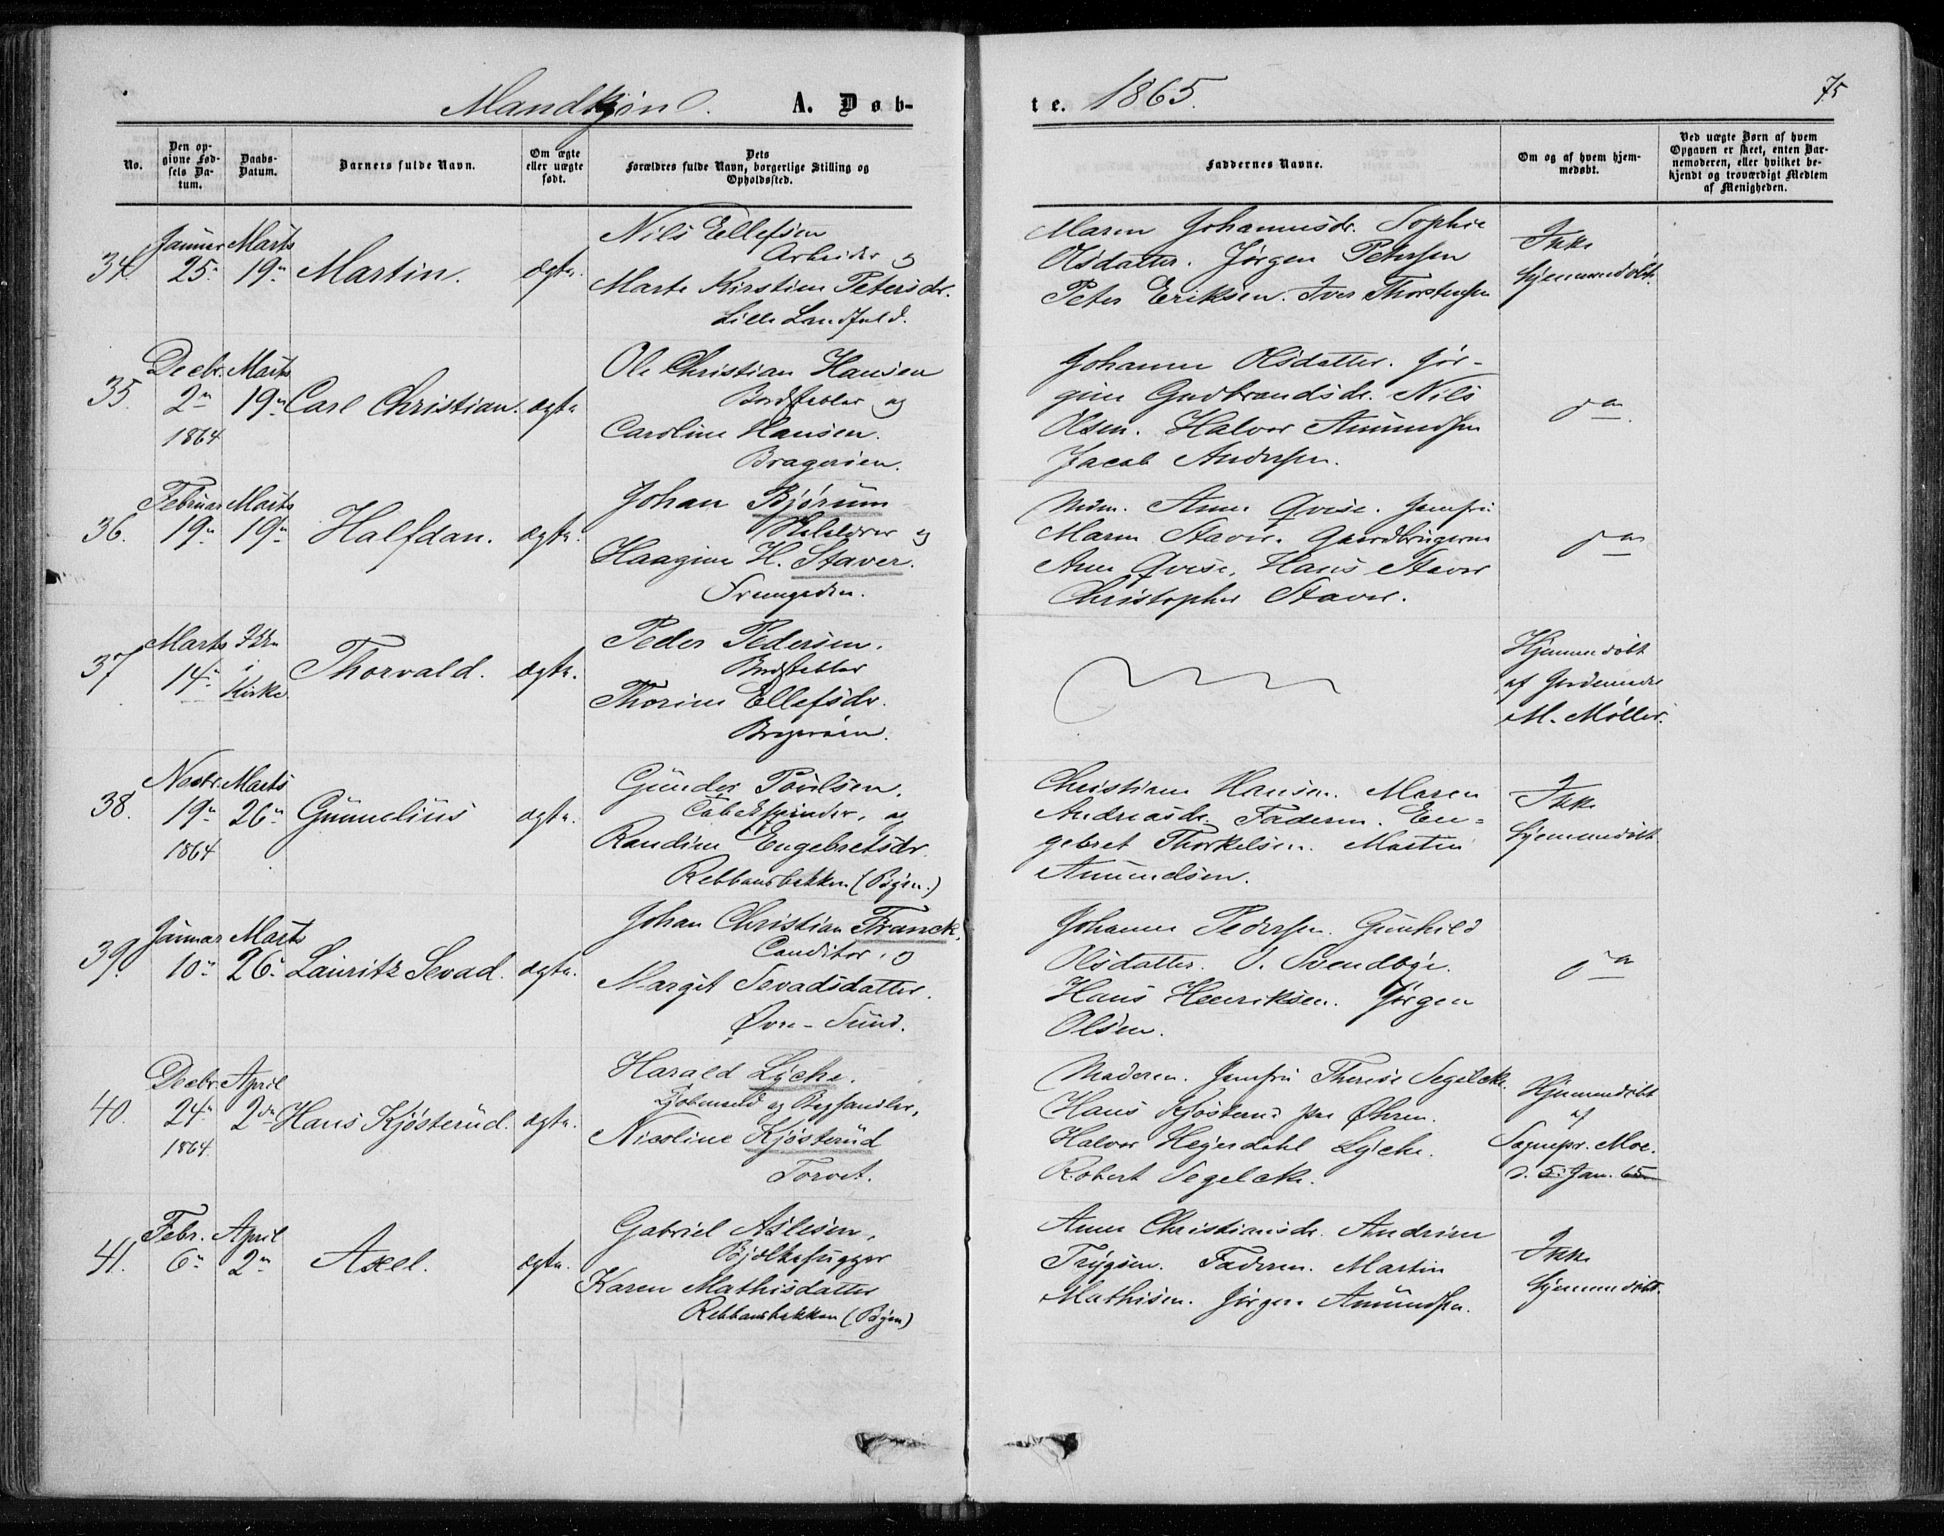 Mandkjøn. A. Døb-
te. 1865.
75
No.
Den op-
givne Fød-
sels Da-
tum.
Daabs-
Datum.
Barnets fulde Navn.
Om ægte
eller uægte
født.
Dets
Forældres fulde Navn, borgerlige Stilling og
Opholdssted.
Faddernes Navne.
Om og af hvem hjem-
medøbt.
Ved uægte Børn af hvem
Opgaven er skeet, enten Bar-
nemoderen, eller hvilket be-
kjendt og troværdigt Medlem
af Menigheden.
34.
Januar
25
Marts
19
Martin.
ægte.
Nils Ellefsen
Arbeider og
Marte Kirstine Petersdr.
Lille Landfald.
Maren Johannesdr. Sophie
Olsdatter. Jørgen Petersen
Peter Eriksen. Iver Thorstensen
Ikke
hjemmedøbt.
35.
Decbr.
2
1864
Marts
19
Carl Christian.
ægte
Ole Christian Hansen
Bordstabler og
Caroline Hansen.
Bragerøen.
Johanne Olsdatter. Jør-
gine Gudbrandsdr. Nils
Olsen. Halvor Amundsen
Jacob Andersen.
do
36.
Februar
19
Marts
19
Halfdan.
ægte.
Johan Bjørum
og
Haagine H. Staver.
Anne Qvise. Jomfru
Maren Staver. Gaardbrugerne
Ane Qvise. Hans Staver
Christopher Staver.
do
37
Marts
14
i
Kirke.
Thorvald.
ægte.
Peder Pedersen.
Bordstabler
Thorine Ellefsdr.
Bragerøen.
Hjemmedøbt
af Jordemoder
M. Møller.
38.
Novbr.
19
1864
Marts
26
Gunnelius
ægte.
Gunder Poulsen.
Tobakspinder, og
Randine Engebretsdr.
Rebbansbakken (Byen.)
Christiane Hansen. Maren
Andreasdr. Faderen. En-
gebret Thorkelsen. Martin
Amundsen.
Ikke
hjemmedøbt
39.
Januar
10
Marts
26
Lauritz Sevad.
ægte.
Johan Christian Franck,
Conditor, og
Margit Sevadsdatter.
Øvre-Sund.
Johanne Pedersen. Gunhild
Olsdatter. O. Svendbye.
Hans Henriksen. Jørgen
Olsen.
do
40.
Decbr.
24
1864
April
2
Hans Kjøsterud.
ægte.
Harald Lyche.
Kjøbmand og Boghandler,
Nicoline Kjøsterud
Torvet.
Moderen. Jomfru Therese Segelcke.
Hans Kjøsterud paa Øhren.
Halvor Heyerdahl Lyche.
Robert Segelcke.
Hjemmedøbt
af
Sognepr. Moe.
d. 5. Jan. 65
41.
Febr.
6
April
2
Axel.
ægte.
Gabriel Aslesen,
Bjælkehugger
Karen Mathisdatter
Rebbansbakken (Byen)
Anne Christiansdr. Andrine
Trygsen. Faderen. Martin
Mathisen. Jørgen Amundsen.
Ikke
hjemmedøbt.